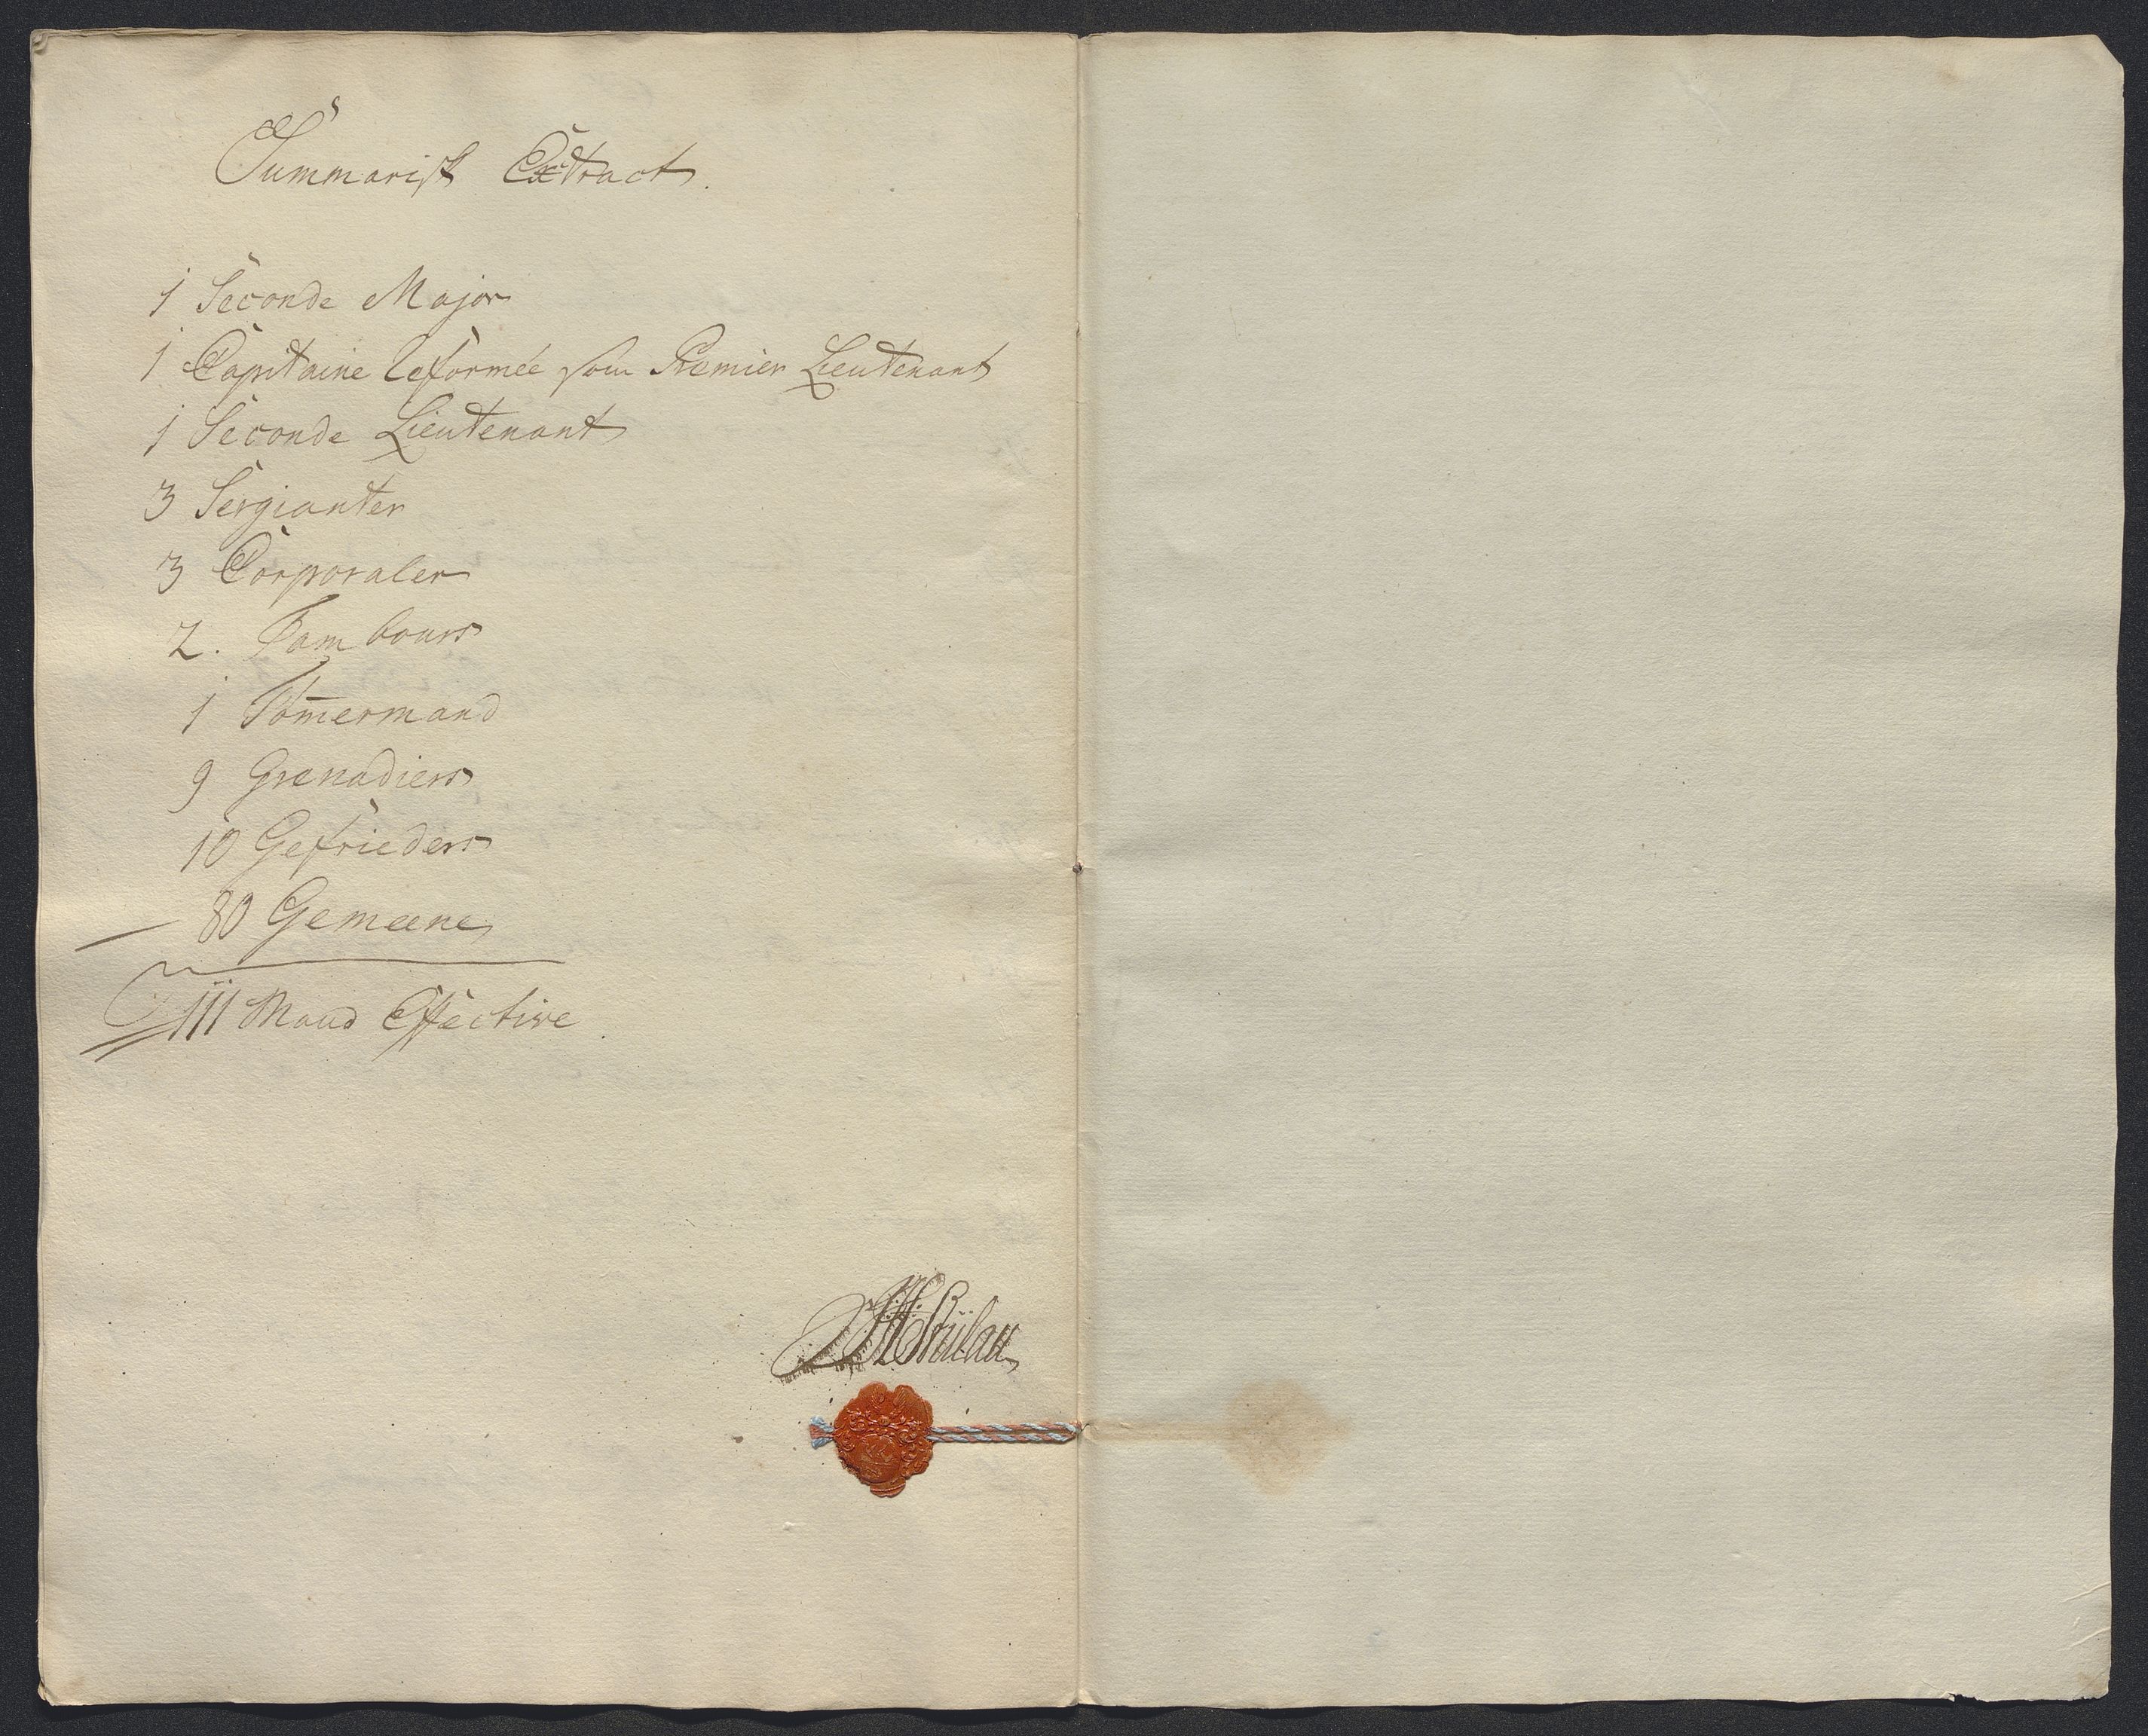 Summarisk Extract.
1 Seconde Major
1 Capitaine Reformée som Premier Lieutenant
1 Seconde Lieutenant
3 Sergianter
3 Corporaler
2. Tambours
1 Tom̄ermand
9 Grenadiers
10 Gefrieders
80 Gemeene
111 Mand Effective